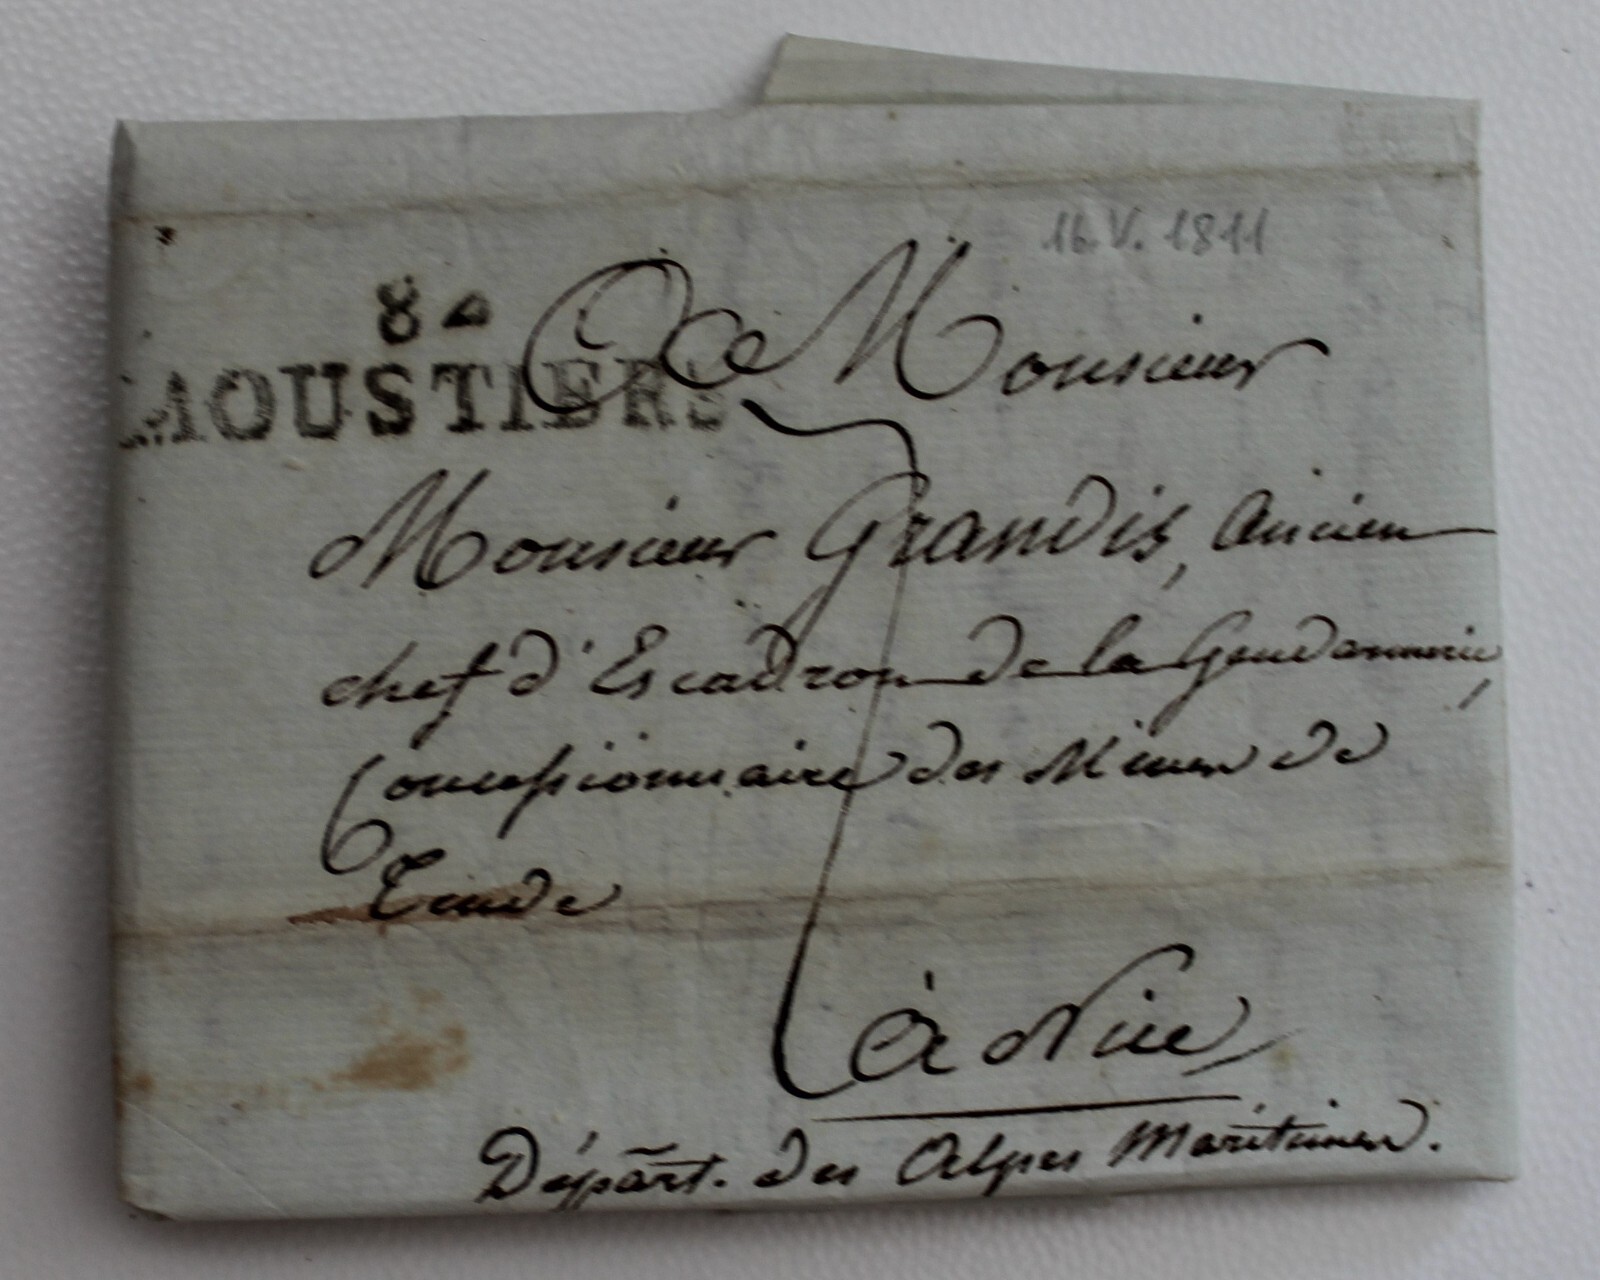 16.V.1811
84
MOUSTIERS
A Monsieur
Monsieur Grandis, ancien
chef d'Escadron de la Gendarmerie,
Concessionnaire des Mines de
Tende
à Nice
Départ. des Alpes Maritimes.